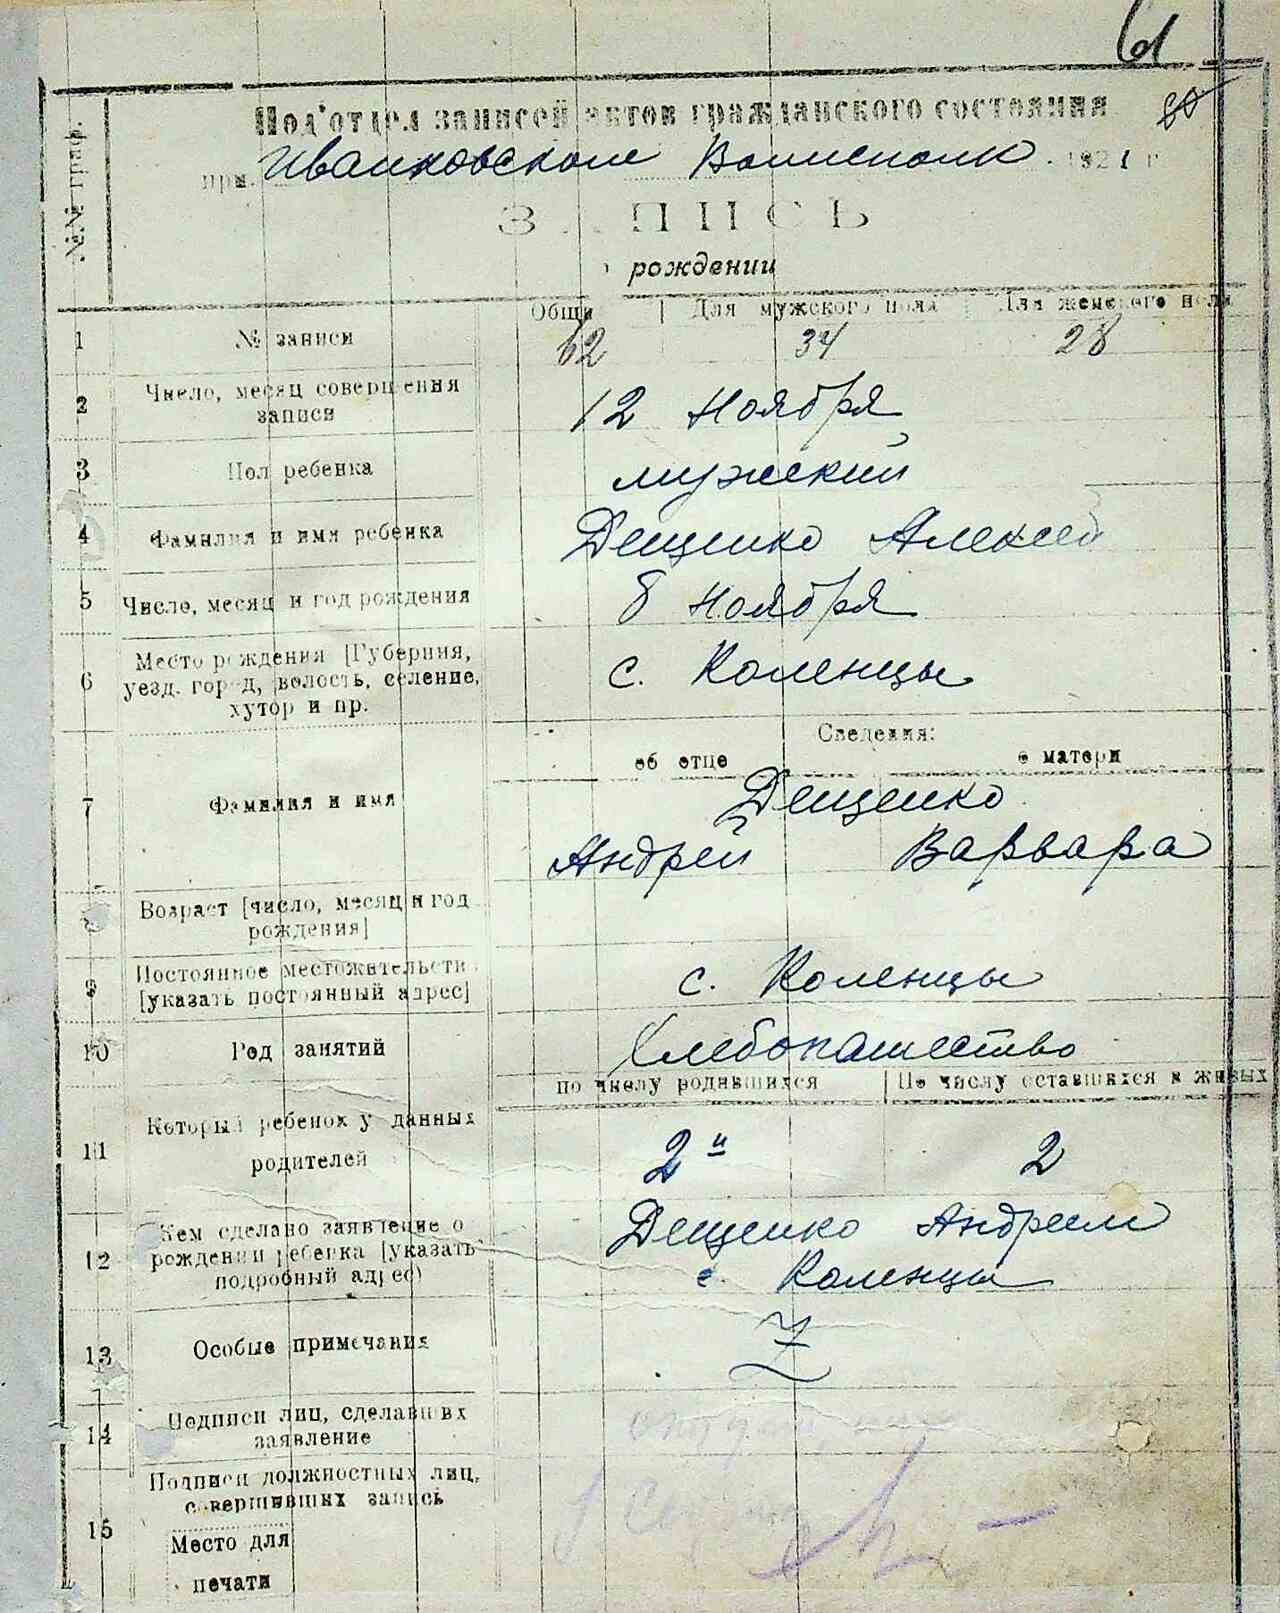 61
80
№№ граф.
Под'отдел записей актов гражданского состояния
при Иванковском Волисполк. 1921 г
ЗАПИСЬ
рождении
Общи | Для мужского пола | Для женского пола
1 № записи 62 34 28
2 Число, месяц совершения
записи 12 Ноября
3 Пол ребенка мужский
4 Фамилия и имя ребенка Дещенко Алексей
5 Число, месяц и год рождения 8 Ноября
Место рождения [Губерния,
6 уезд. город, волость, селение, с. Коленцы
хутор и пр.
Сведения:
об отце о матери
7 Фамилия и имя Дещенко
Андрей Варвара
8 Возраст [число, месяц и год
рождения]
9 Постоянное местожительств
[указать постоянный адрес] с. Коленцы
10 Род занятий Хлебопашество
по числу родившихся | По числу оставшихся в живых
Который ребенок у данных
11 родителей 2й 2
Кем сделано заявление о
12 рождении ребенка [указать Дещенко Андреем
подробный адрес) с. Коленцы
13 Особые примечания Z
14 Подписи лиц, сделавших
заявление
Подписи должностных лиц,
совершивших запись
15
Место для
печати